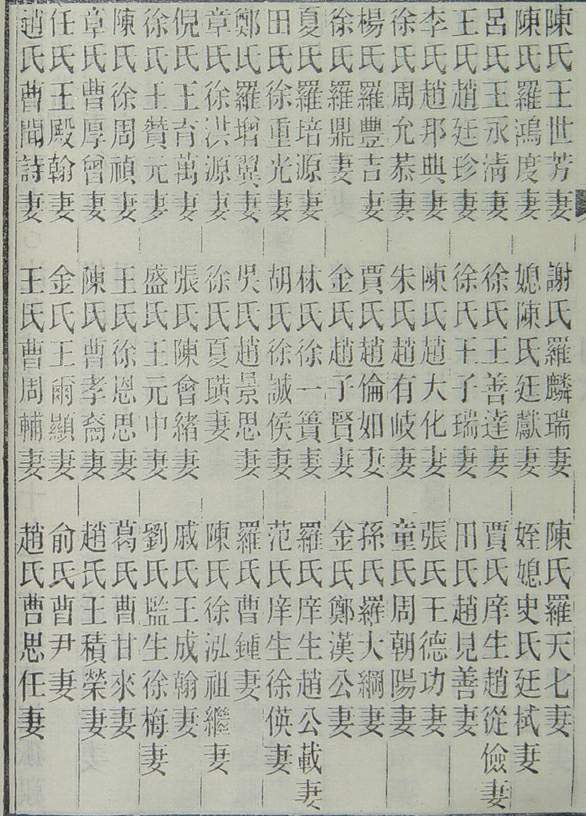 陳氏王世芳妻 謝氏羅麟瑞妻 陳氏羅天七妻
陳氏羅鴻度妻 媳陳氏廷獻妻 姪媳史氏廷栻妻
呂氏王永淸妻 徐氏王善達妻 賈氏庠生趙從儉妻
王氏趙廷珍妻 徐氏王子瑞妻 田氏趙見善妻
李氏趙邦典妻 陳氏趙大化妻 張氏王德功妻
徐氏周允恭妻 朱氏趙有岐妻 童氏周朝陽妻
楊氏羅豐吉妻 賈氏趙倫如妻 孫氏羅大綱妻
徐氏羅鼎妻 金氏趙子賢妻 金氏鄭漢公妻
夏氏羅培源妻 林氏徐一簣妻 羅氏庠生趙公載妻
田氏徐重光妻 胡氏徐誠侯妻 范氏庠生徐偀妻
鄭氏羅增翼妻 吳氏趙景思妻 羅氏曹鍾妻
章氏徐洪源妻 徐氏夏璜妻 陳氏徐泓祖繼妻
倪氏王育萬妻 張氏陳會緒妻 戚氏王成翰妻
徐氏王贊元妻 盛氏王元中妻 劉氏監生徐梅妻
陳氏徐周禎妻 王氏徐恩思妻 葛氏曹甘來妻
章氏曹厚曾妻 陳氏曹孝裔妻 趙氏王積榮妻
任氏王殿翰妻 金氏王爾顯妻 俞氏曹尹妻
趙氏曹聞詩妻 王氏曹周輔妻 趙氏曹思任妻